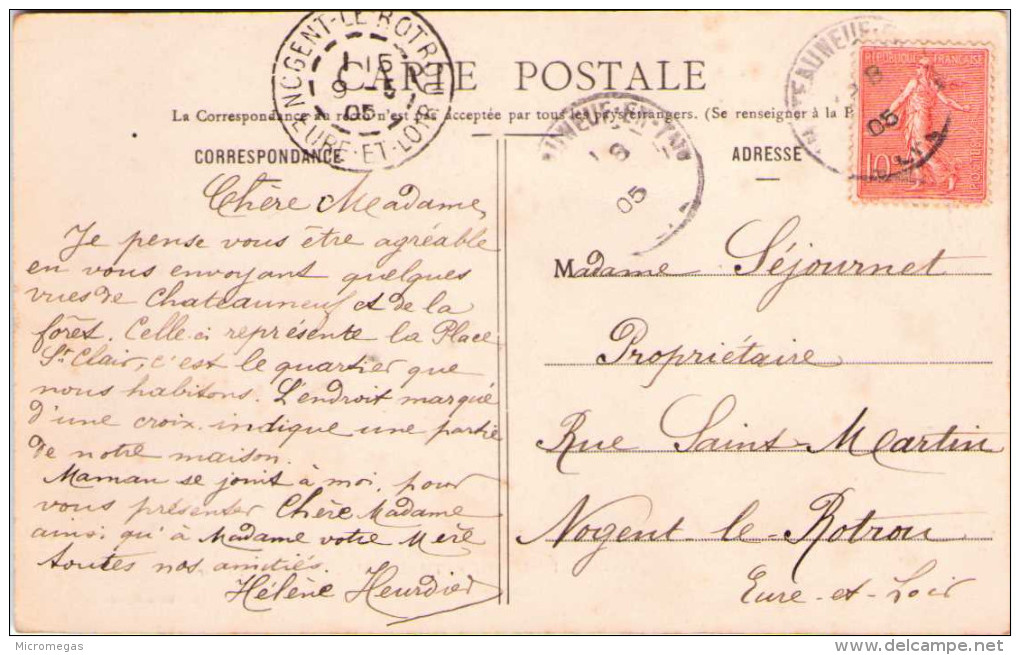 NOGENT-LE-ROTROU
1 15
9 -5
05
EURE-ET-LOIR
CARTE POSTALE
La Correspondance au recto n'est pas acceptée par tous les pays étrangers. (Se renseigner à la P
CORRESPONDANCE
ADRESSE
8
05
8
05
REPUBLIQUE FRANÇAISE
10
Chère Madame,
Je pense vous être agréable
en vous envoyant quelques
vues de Chateauneuf et de la
forêt. Celle ci représente la Place
St Clair, c'est le quartier que
nous habitons. L'endroit marqué
d'une croix indique une partie
de notre maison.
Maman se joint à moi pour
vous présenter Chère Madame
ainsi qu'à Madame votre Mère
toutes nos amitiés.
Hélène Heurdier
Madame Séjournet
Propriétaire
Rue Saint-Martin
Nogent-le-Rotrou
Eure-et-Loir
Micromegas
www.delcampe.net